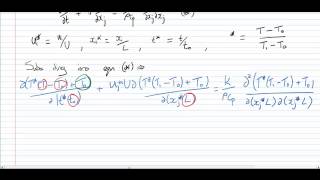 ∂t + ∂xj = ρcp ∂xj∂xj
u* = u/U , xi* = x/L , t* = t/t₀ , * = T - T₀ / T₁ - T₀
Subs into eqn (*) ⇒
∂(T*(T₁-T₀)+T₀) / ∂(t*t₀) + uj*U ∂(T*(T₁-T₀)+T₀) / ∂(xj*L) = k / ρcp ∂²(T*(T₁-T₀)+T₀) / ∂(xj*L)∂(xj*L)